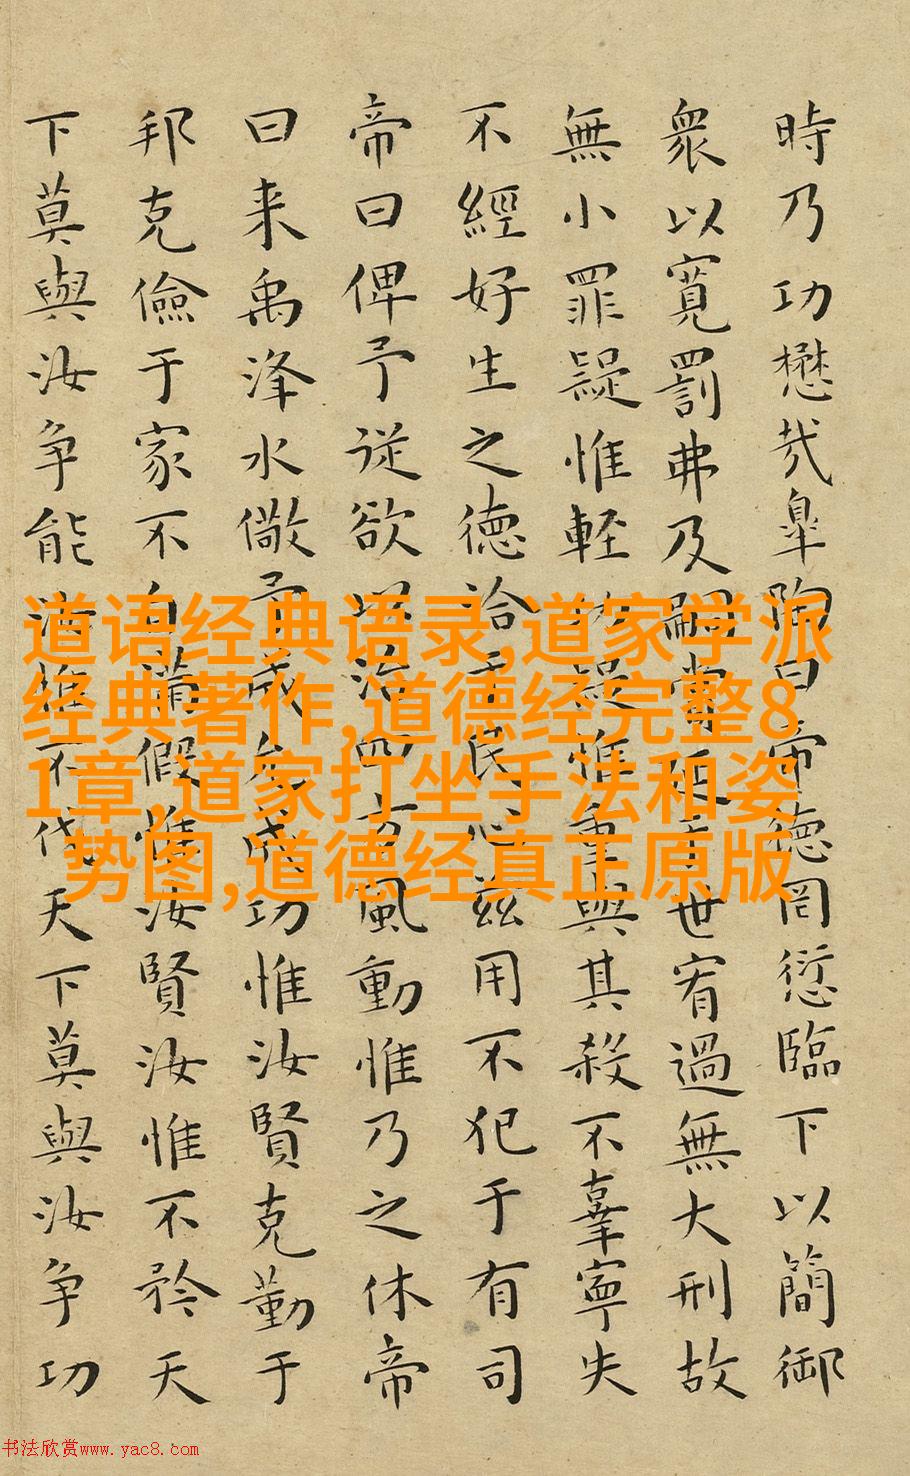 時乃功懋哉皐陶曰帝德罔愆臨下以簡御
衆以寬罰弗及嗣賞延于世宥過無大刑故
無小罪疑惟輕功疑惟重與其殺不辜寧失
不經好生之德洽于民心兹用不犯于有司
帝曰俾予從欲以治四方風動惟乃之休帝
曰来禹洚水儆予成允成功惟汝賢克勤于
邦克儉于家不自滿假惟汝賢汝惟不矜天
下莫與汝争能汝惟不伐天下莫與汝争功
道语经典语录,道家学派
经典著作,道德经完整8
1章,道家打坐手法和姿
势图,道德经真正原版
书法欣赏www.yac8.com